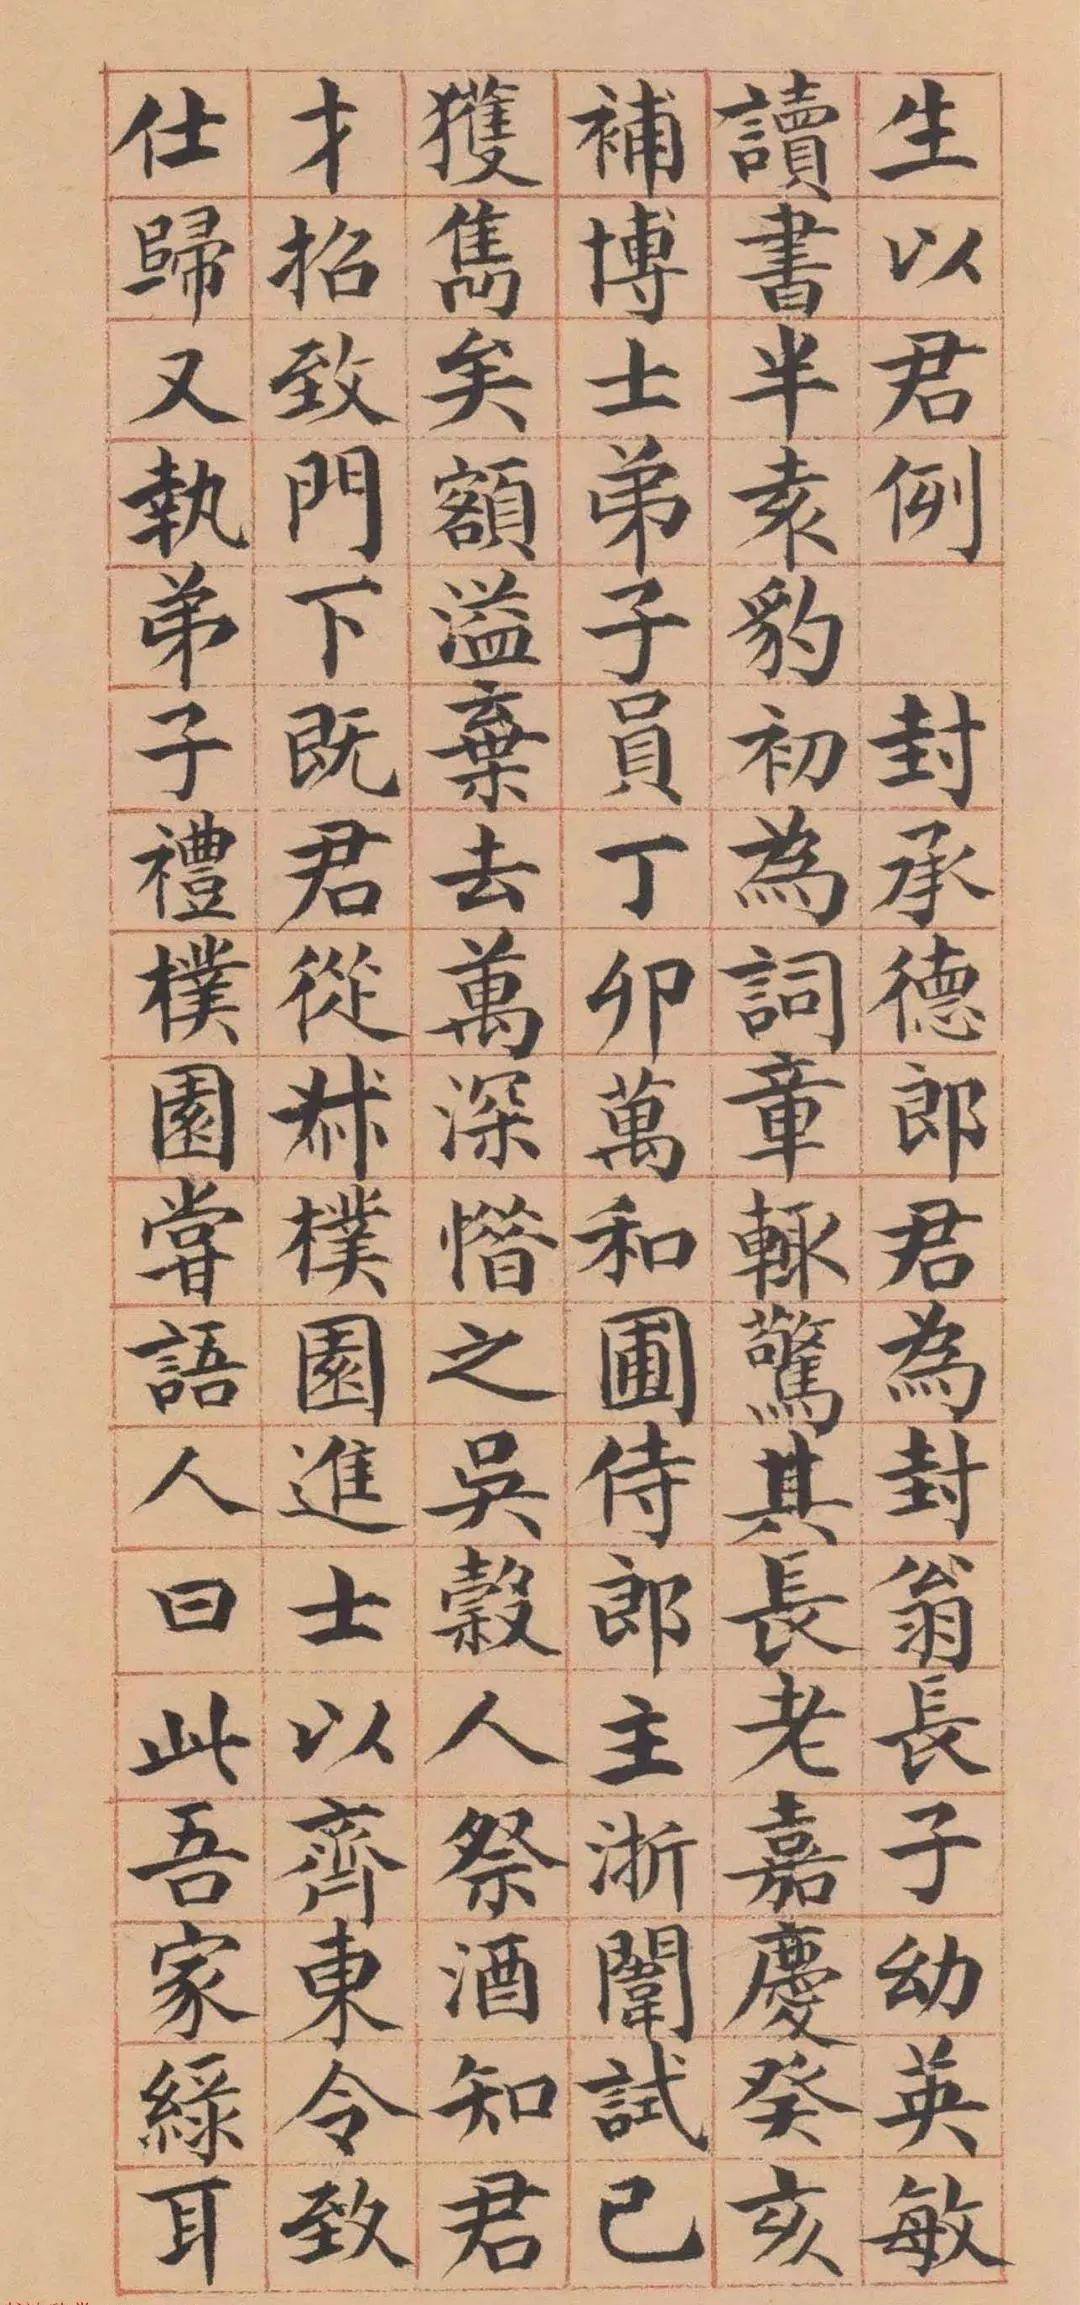 生以君例　封承德郎君為封翁長子幼英敏
讀書半袁豹初為詞章輙驚其長老嘉慶癸亥
補博士弟子員丁卯萬和圃侍郎主浙闈試已
獲雋矣額溢棄去萬深惜之吳穀人祭酒知君
才招致門下既君從叔樸園進士以齊東令致
仕歸又執弟子禮樸園嘗語人曰此吾家綠耳